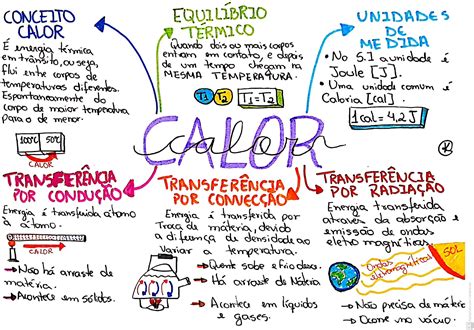 CONCEITO
CALOR
É energia térmica
em trânsito, ou seja,
Flui entre corpos de
temperaturas diferentes.
Espontaneamente do
corpo de maior temperatura
para o de menor.
100°C 50°C
CALOR
EQUILÍBRIO
TÉRMICO
Quando dois ou mais corpos
entram em contato, e depois
de um tempo chegam na
MESMA TEMPERATURA.
T1 T2 T1=T2
UNIDADES
DE
MEDIDA
• No S.I a unidade é
Joule [J].
• Uma unidade comum é
Caloria [cal].
1cal = 4,2 J
CALOR
calor
TRANSFERÊNCIA
POR CONDUÇÃO
Energia é transferida átomo
à átomo.
CALOR
→ Não há arraste de
matéria.
→ Acontece em sólidos.
TRANSFERÊNCIA
POR CONVECÇÃO
Energia é transferida por
Troca de matéria, devido
a diferença de densidade ao
variar a temperatura.
→ Quente sobe e Frio desce.
→ Há arraste de Matéria
→ Acontece em líquidos
e gases.
TRANSFERÊNCIA
POR RADIAÇÃO
Energia transferida
através da absorção e
emissão de ondas
eletromagnéticas.
Ondas
eletromagnéticas
SOL
→ Não precisa de matéria
→ Ocorre no vácuo.